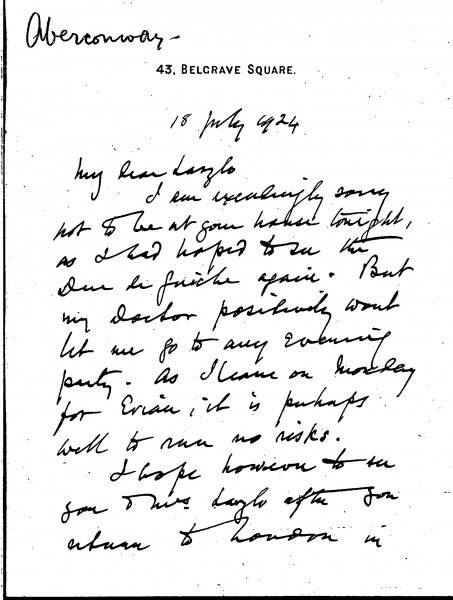 Aberconway -
43, BELGRAVE SQUARE.
18 July 1924
My dear Laszlo
I am exceedingly sorry
not to be at your house tonight,
as I had hoped to see the
Duc de Guiche again. But
my doctor positively wont
let me go to any evening
party. As I leave on Monday
for Evian, it is perhaps
well to run no risks.
I hope however to see
you & Mrs Laszlo after you
return to London in